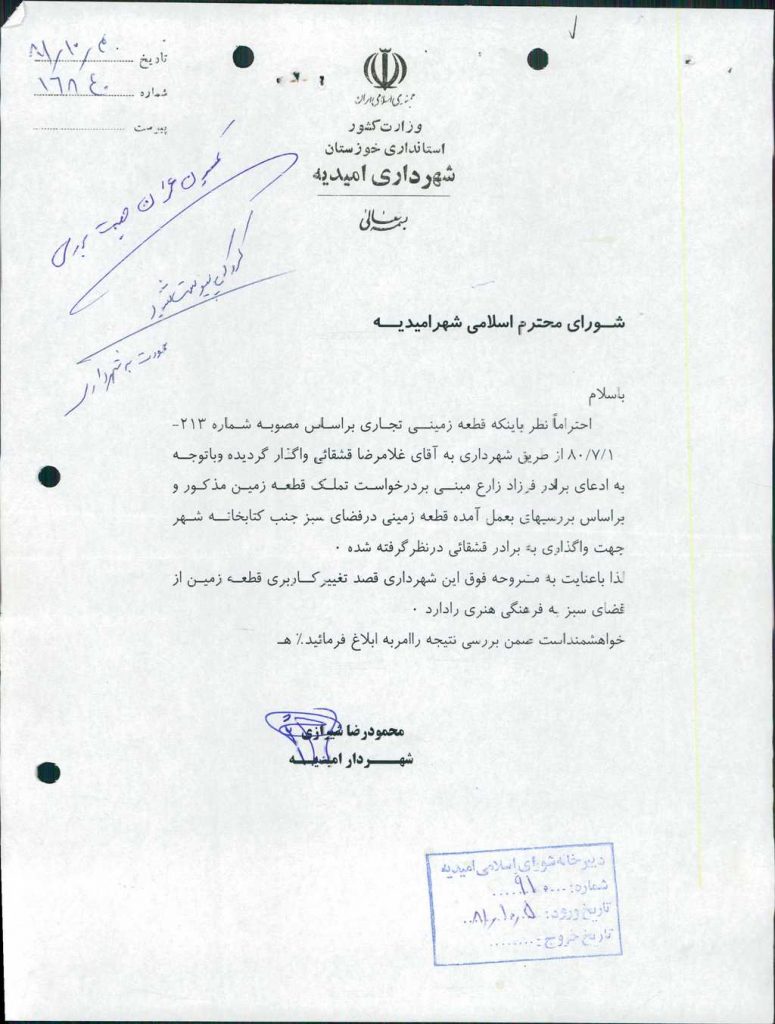 تاریخ ۸۱/۱۰/۴
شماره ۱۶۸۴۰
پیوست
جمهوری اسلامی ایران
وزارت کشور
استانداری خوزستان
شهرداری امیدیه
بسمه تعالی
کمسیون عمران جهت بررسی
شورای محترم اسلامی شهر امیدیه
باسلام
احتراماً نظر باینکه قطعه زمینی تجاری براساس مصوبه شماره ۲۱۳-
۸۰/۷/۱ از طریق شهرداری به آقای غلامرضا قشقائی واگذار گردیده وباتوجه
به ادعای برادر فرزاد زارع مبنی بردرخواست تملک قطعه زمین مذکور و
براساس بررسیهای بعمل آمده قطعه زمینی درفضای سبز جنب کتابخانه شهر
جهت واگذاری به برادر قشقائی درنظرگرفته شده ۰
لذا باعنایت به مشروحه فوق این شهرداری قصد تغییرکاربری قطعه زمین از
فضای سبز به فرهنگی هنری رادارد ۰
خواهشمنداست ضمن بررسی نتیجه راامربه ابلاغ فرمائید٪ هـ
محمودرضا شیرازی
شهردار امیدیه
دبیرخانه شورای اسلامی امیدیه
شماره: ۹۱۰
تاریخ ورود: ۸۱/۱۰/۵
تاریخ خروج: